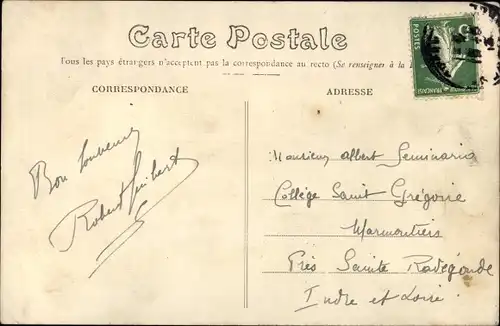 Carte Postale
Tous les pays étrangers n'acceptent pas la correspondance au recto (Se renseigner à la
CORRESPONDANCE
ADRESSE
Bon Souvenir
Robert Guibert
Monsieur Albert Seminario
Collège Saint Grégoire
Marmoutiers
Près Sainte Radégonde
Indre et Loire
5
POSTES